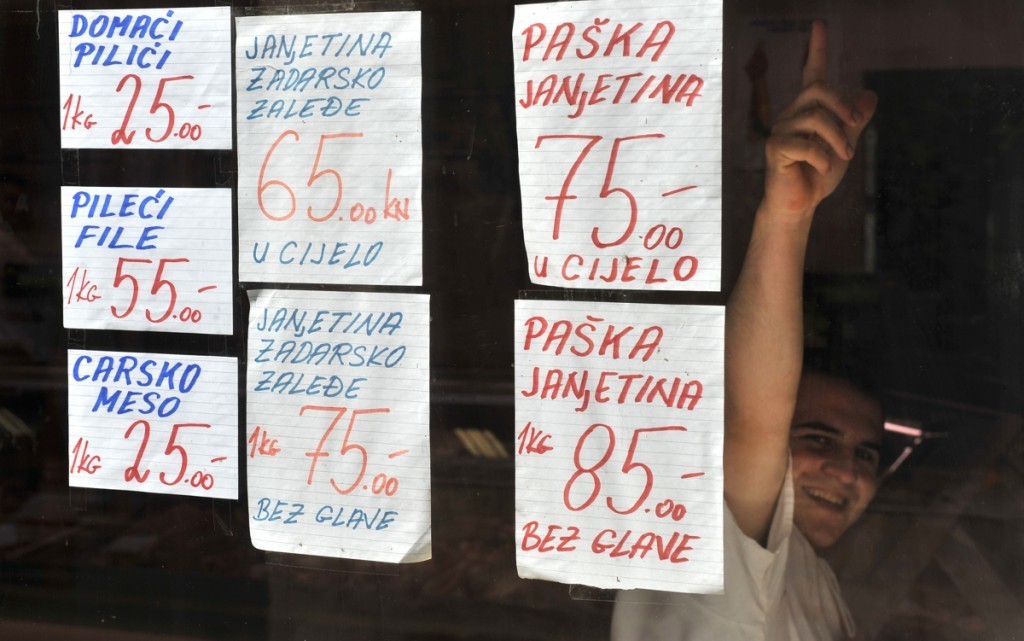 DOMAĆI
PILIĆI
1KG 25.00-
PILEĆI
FILE
1KG 55.00-
CARSKO
MESO
1KG 25.00-
JANJETINA
ZADARSKO
ZALEĐE
65.00 KN
U CIJELO
JANJETINA
ZADARSKO
ZALEĐE
1KG 75.00-
BEZ GLAVE
PAŠKA
JANJETINA
75.00-
U CIJELO
PAŠKA
JANJETINA
1KG 85.00-
BEZ GLAVE